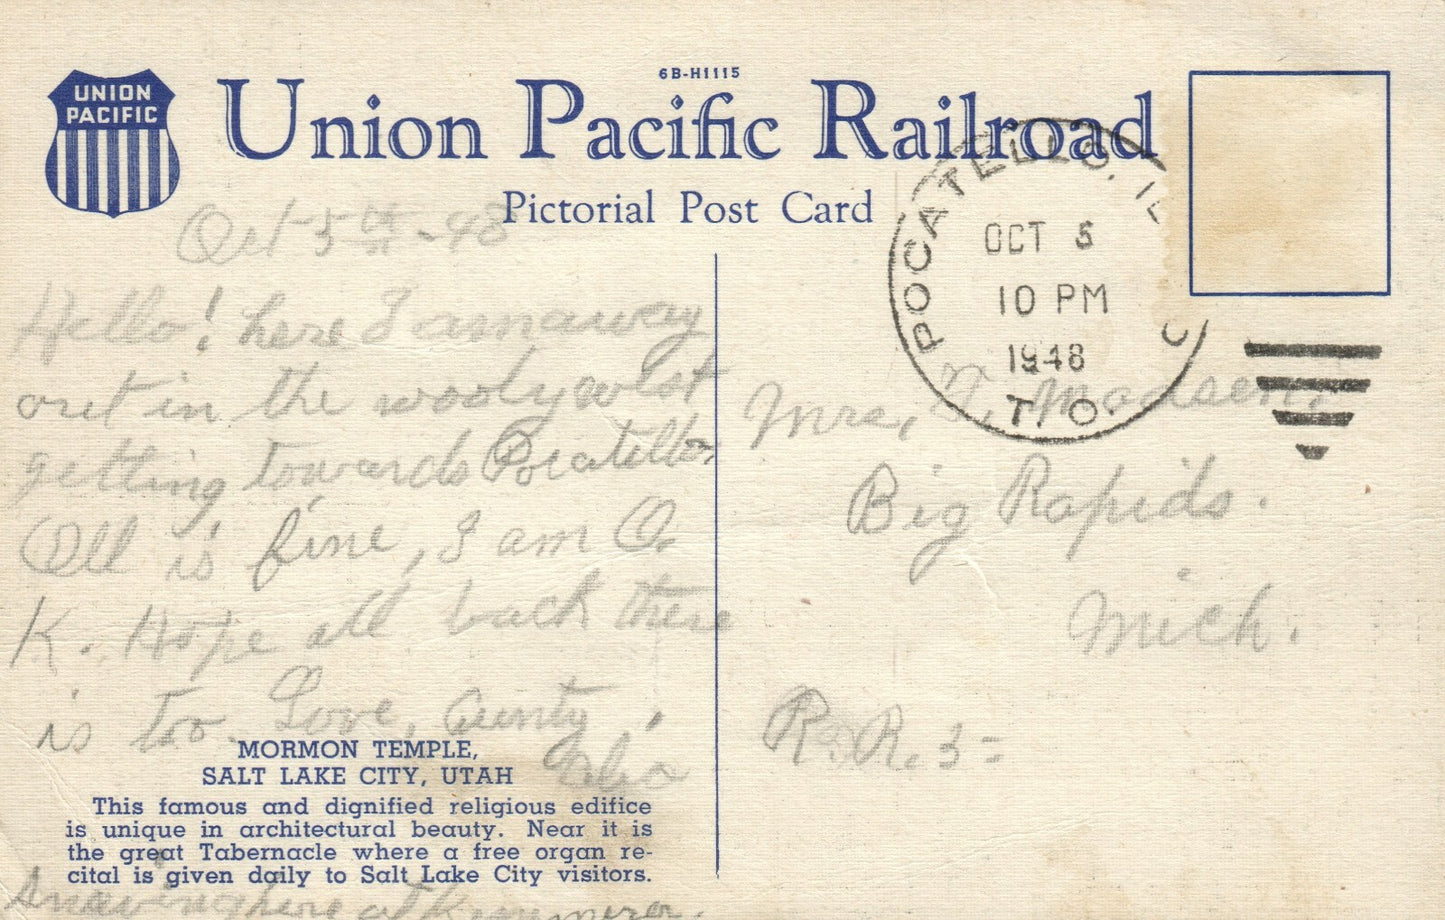 6B-H1115
UNION
PACIFIC
Union Pacific Railroad
Pictorial Post Card
POCATELLO, I
OCT 5
10 PM
1948
T. O.
Oct 5th - 48
Hello! here I am away
out in the wooly west
getting towards Pocatello
All is fine, I am O.
K. Hope all back there
is too. Love, Aunty
Mrs, Madsen,
Big Rapids.
Mich.
R. R. 3 -
MORMON TEMPLE,
SALT LAKE CITY, UTAH
This famous and dignified religious edifice
is unique in architectural beauty. Near it is
the great Tabernacle where a free organ re-
cital is given daily to Salt Lake City visitors.
here at Kemmerer.